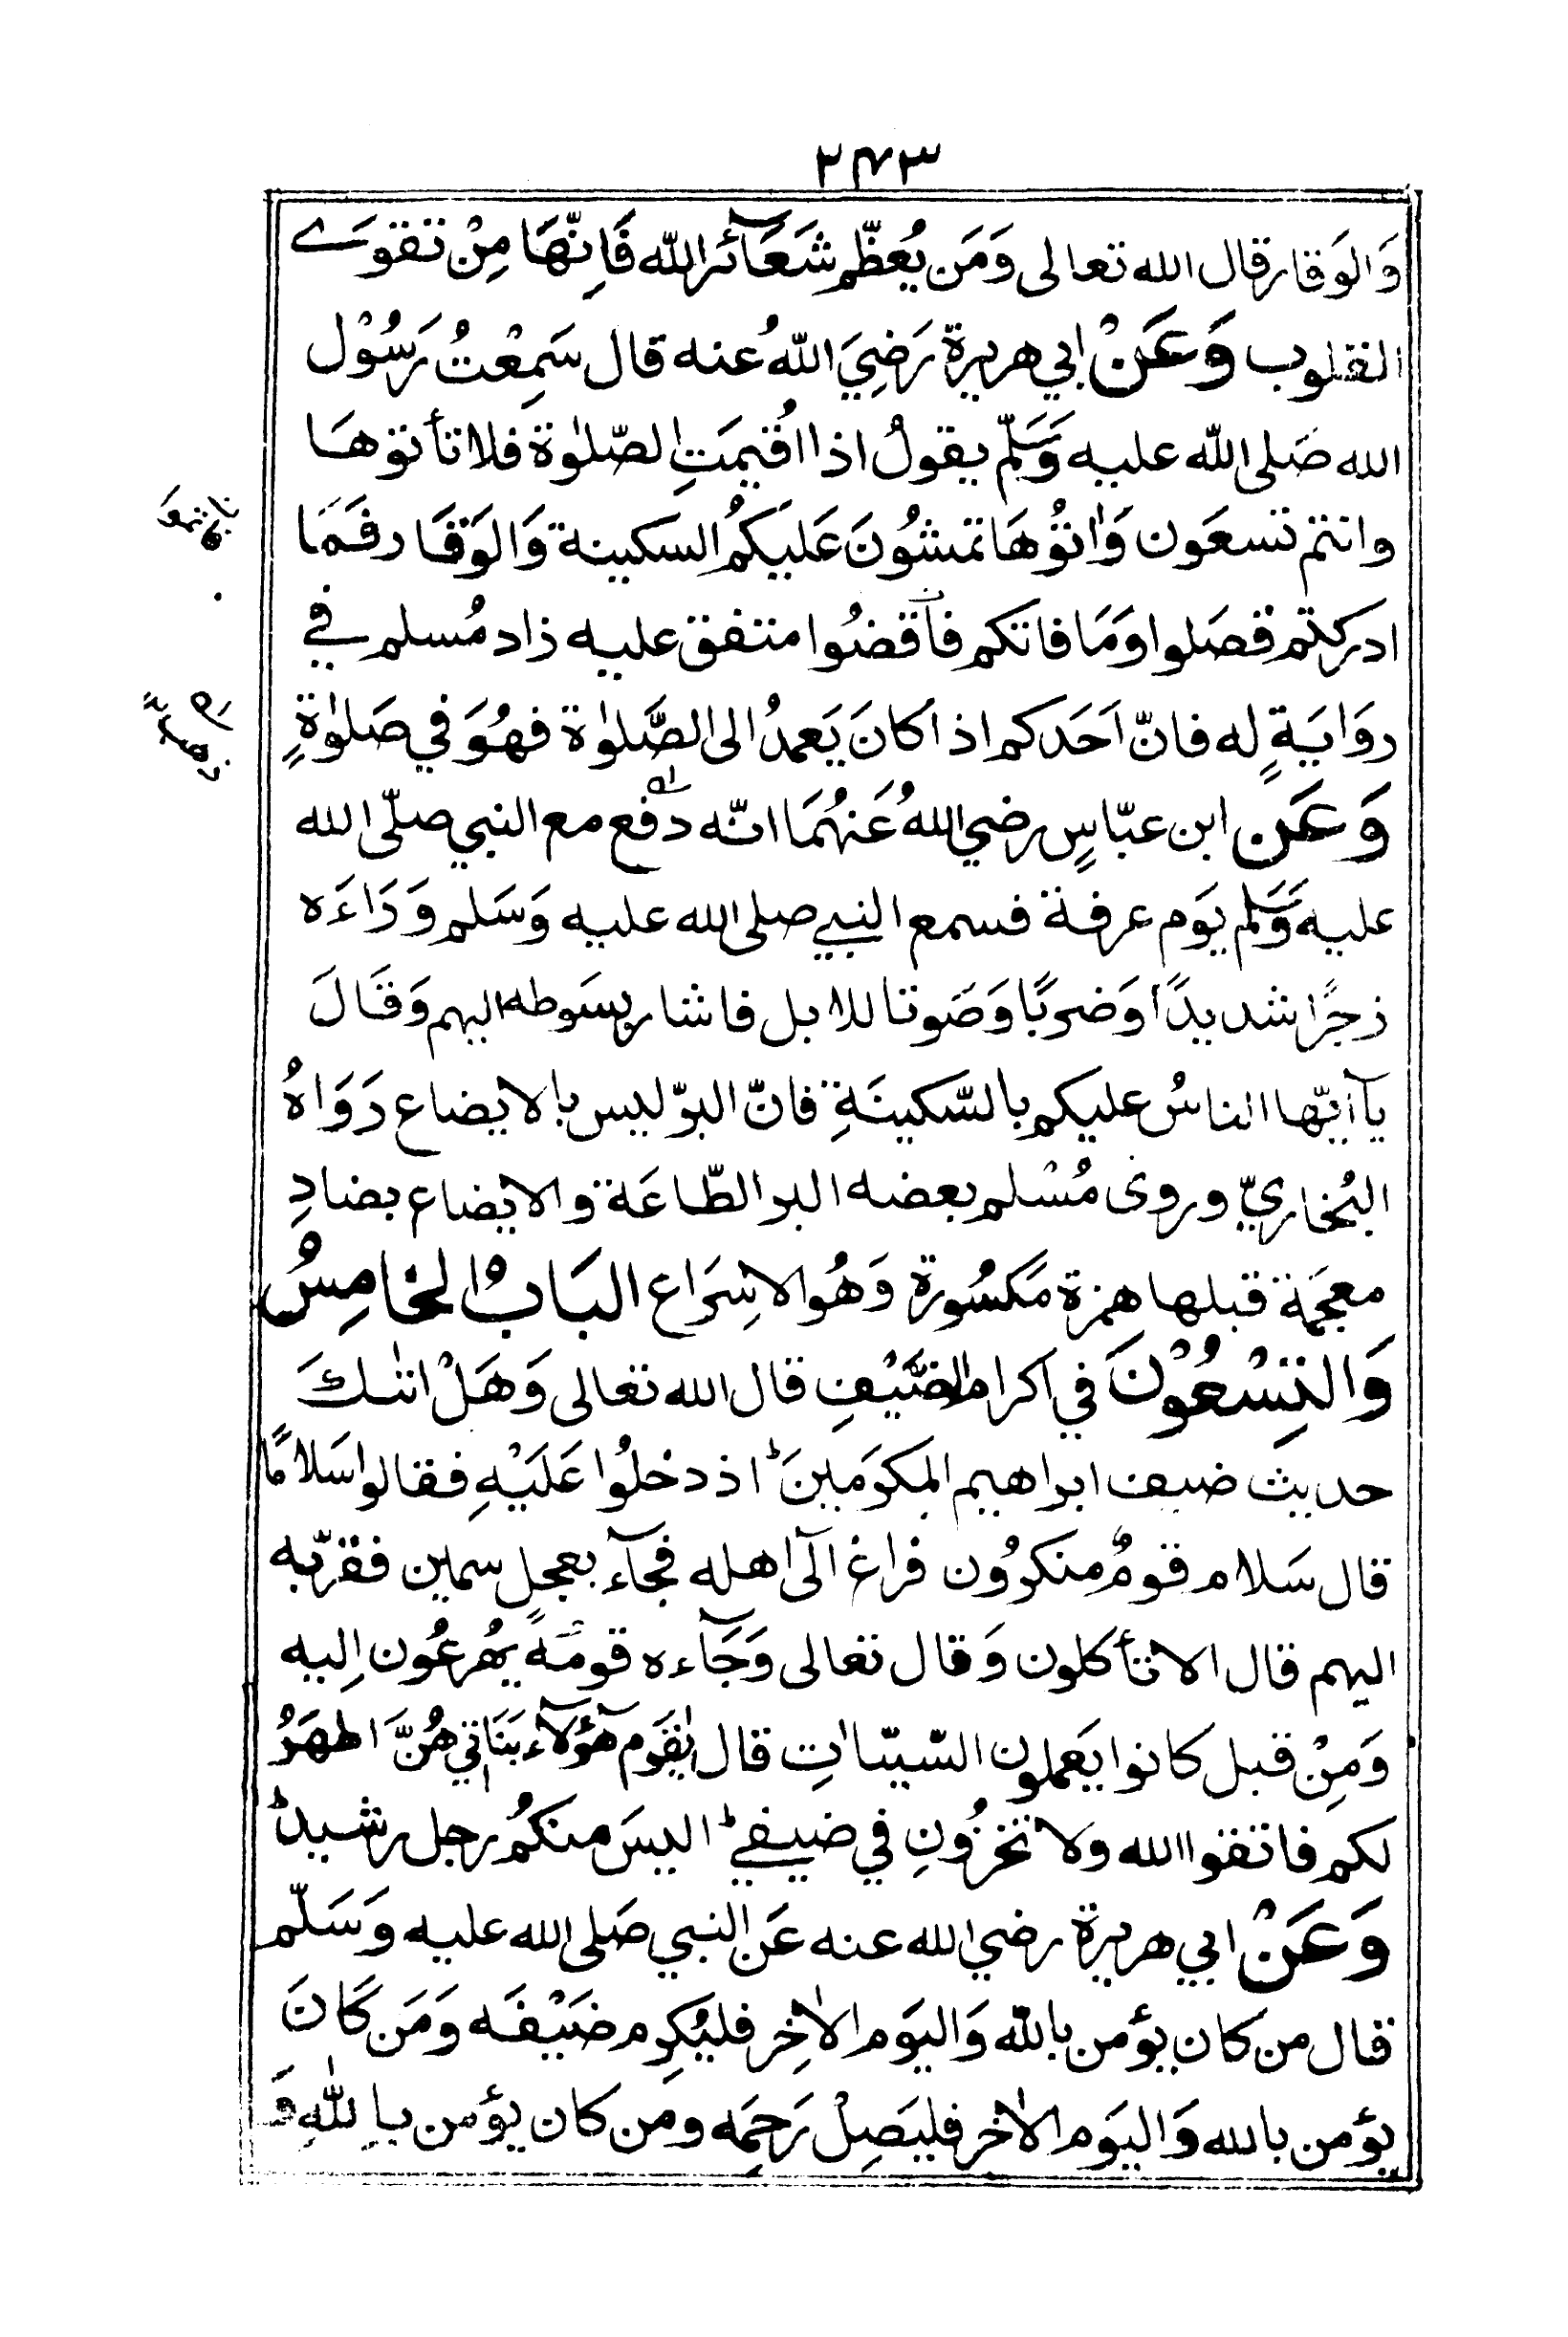 ٢٤٣
وَالوَقار قال الله تعالى وَمَن يُعظّم شَعَآئر الله فَاِنّهَا مِنْ تقوَے
القلوب وَعَنْ ابي هريرة رَضِيَ اللهُ عنه قال سَمِعْتُ رَسُوْل
الله صَلى الله عليه وَسَلّم يقولُ اذا اُقيمَتِ الصّلوٰة فلا تأتوهَا
وانتم تسعَون وَاٰتوُهَا تمشُونَ عَلَيكمُ السكينة وَالوَقَار فَمَا
ادركتم فصَلوا وَمَا فاتكم فآقضُوا متفق عليه زاد مُسلم في
روَايَةٍ له فانّ اَحَدكم اذا كانَ يَعمدُ الى الصَّلوٰة فهُوَ في صَلوٰةٍ
وَعَن ابن عبّاسٍ رضي اللهُ عَنهُمَا انّه دفع مع النبي صلّى الله
عليه وَسَلم يَوم عرفة فسمع النبي صلى الله عليه وَسَلم وَرَاءَه
زجرًا شديدًا وَضربًا وَصَوتا للابل فاشار بسَوطه اليهم وَقَالَ
يآ اَيّها الناسُ عليكم بالسّكينَةِ فانّ البرّ ليس بالايضاع رَوَاهُ
البُخاريّ وروى مُسْلم بعضه البر الطّاعَة والايْضاع بضادٍ
معجَمَة قبلها همزة مَكسُورة وَهُو الاسِرَاع البَابُ الخامِسُ
وَالتِسْعُوْنَ في اكرام الضَّيْفِ قال الله تعالى وَهَلْ اتٰىكَ
حديث ضيف ابراهيم المكرَمينَ ط اذ دخلُوا عَلَيْهِ فقالوا سَلامًا
قال سَلام قومٌ منكرُون فراغ اِلٓى اهله فجآء بعجلٍ سمين فقرّبه
اليهم قال الا تأكلون وَقال تعالى وَجَآءه قومُهُ يُهرعُون اِليه
وَمِنْ قبل كانوا يَعملون السّيّاٰتِ قال يٰقَوم هٓؤلآء بَنَاتي هُنَّ اطهَرُ
لكم فاتقوا الله ولا تخزُونِ في ضيفي ط اليسَ منكمُ رجل رشيدٌ
وَعَنْ ابي هريرة رضي الله عنه عَن النبي صَلى الله عليه وَسَلّم
قال من كان يؤمن بالله وَاليَوم الاٰخِر فليُكرِم ضَيْفَه وَمَن كَانَ
يؤمن بالله وَاليَوم الاٰخر فليَصِلْ رَحِمَه ومن كان يؤمن باللهِ وَ